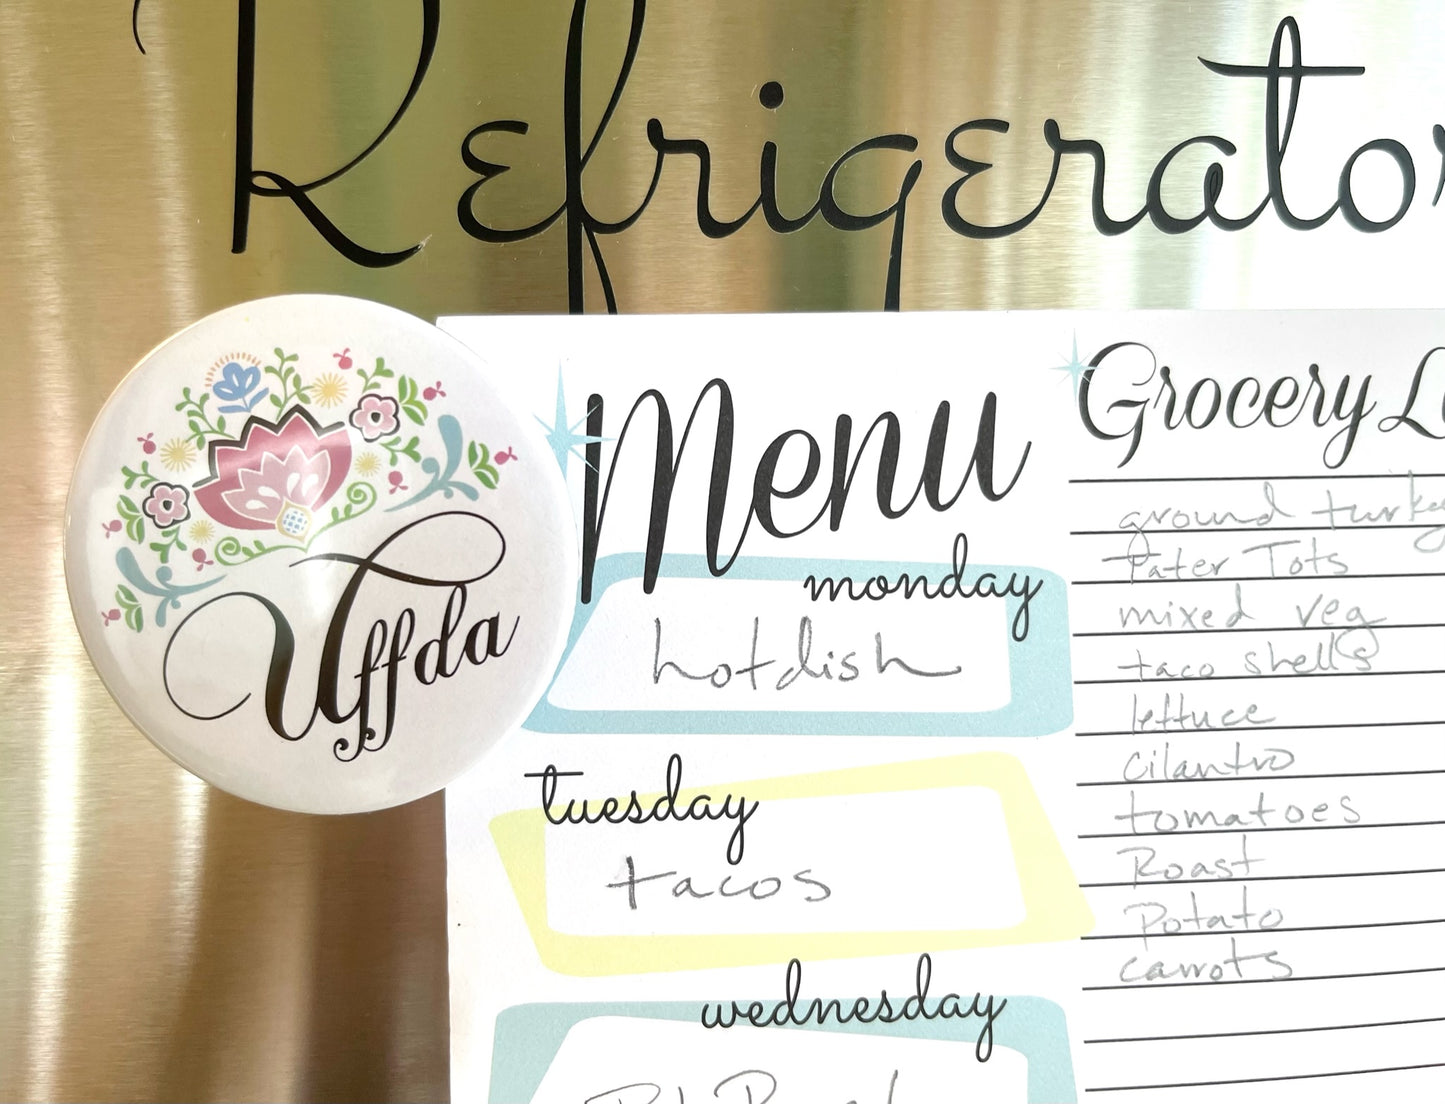 Refrigerator
Uffda
Menu
monday
hotdish
tuesday
tacos
wednesday
Pot Roast
Grocery Li
ground turkey
tater Tots
mixed veg
taco shells
lettuce
cilantro
tomatoes
Roast
Potato
carrots